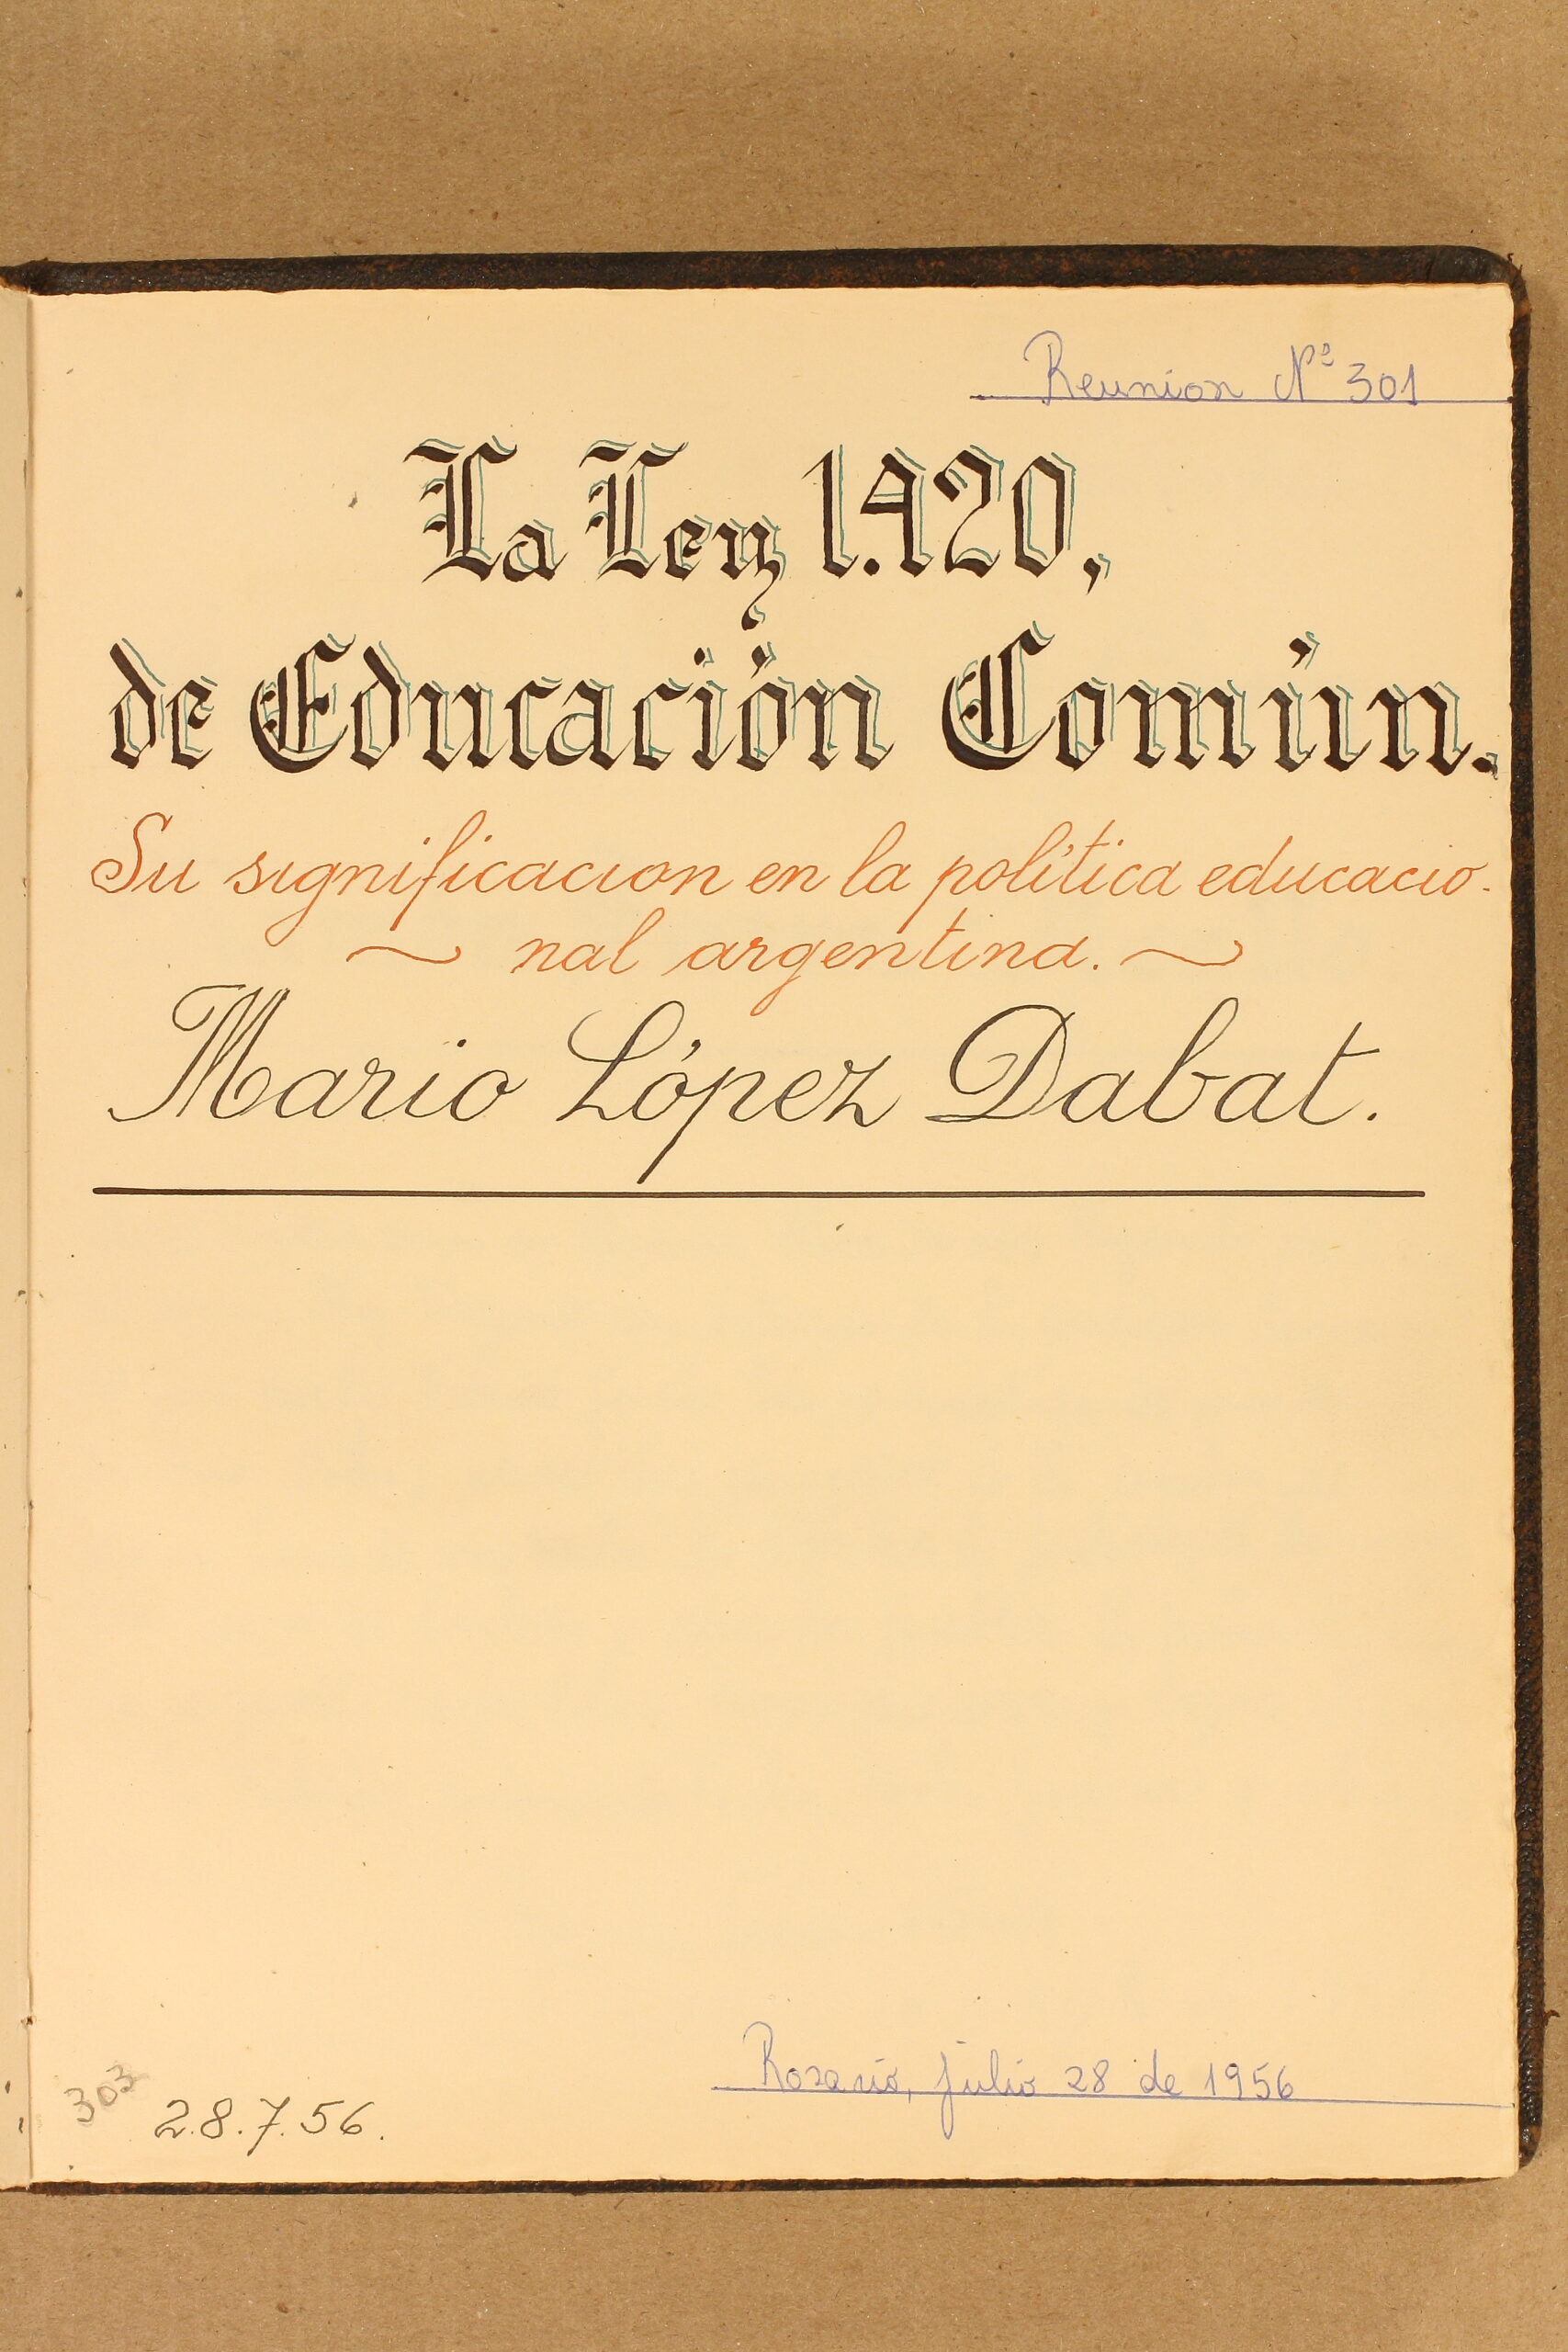 Reunion Nº 301
La Ley 1.420,
de Educación Común.
Su significacion en la política educacio-
~ nal argentina. ~
Mario López Dabat.
Rosario, julio 28 de 1956
303 28.7.56.